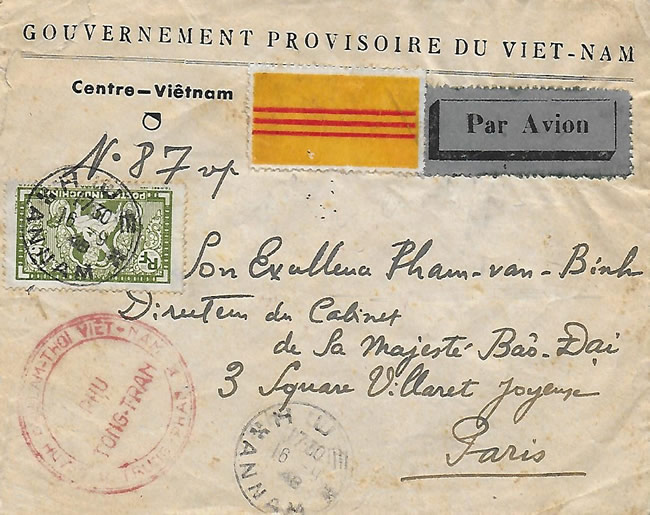 GOUVERNEMENT PROVISOIRE DU VIET-NAM
Centre-Viêtnam
Par Avion
No 87 vp
HUE
17 30
16 9
48
ANNAM
Son Excellence Pham-van-Binh
Directeur du Cabinet
de Sa Majesté Bao-Dai
3 Square Villaret Joyeuse
Paris
VIET-NAM
PHU
TONG-TRAN
17 30
16
48
ANNAM